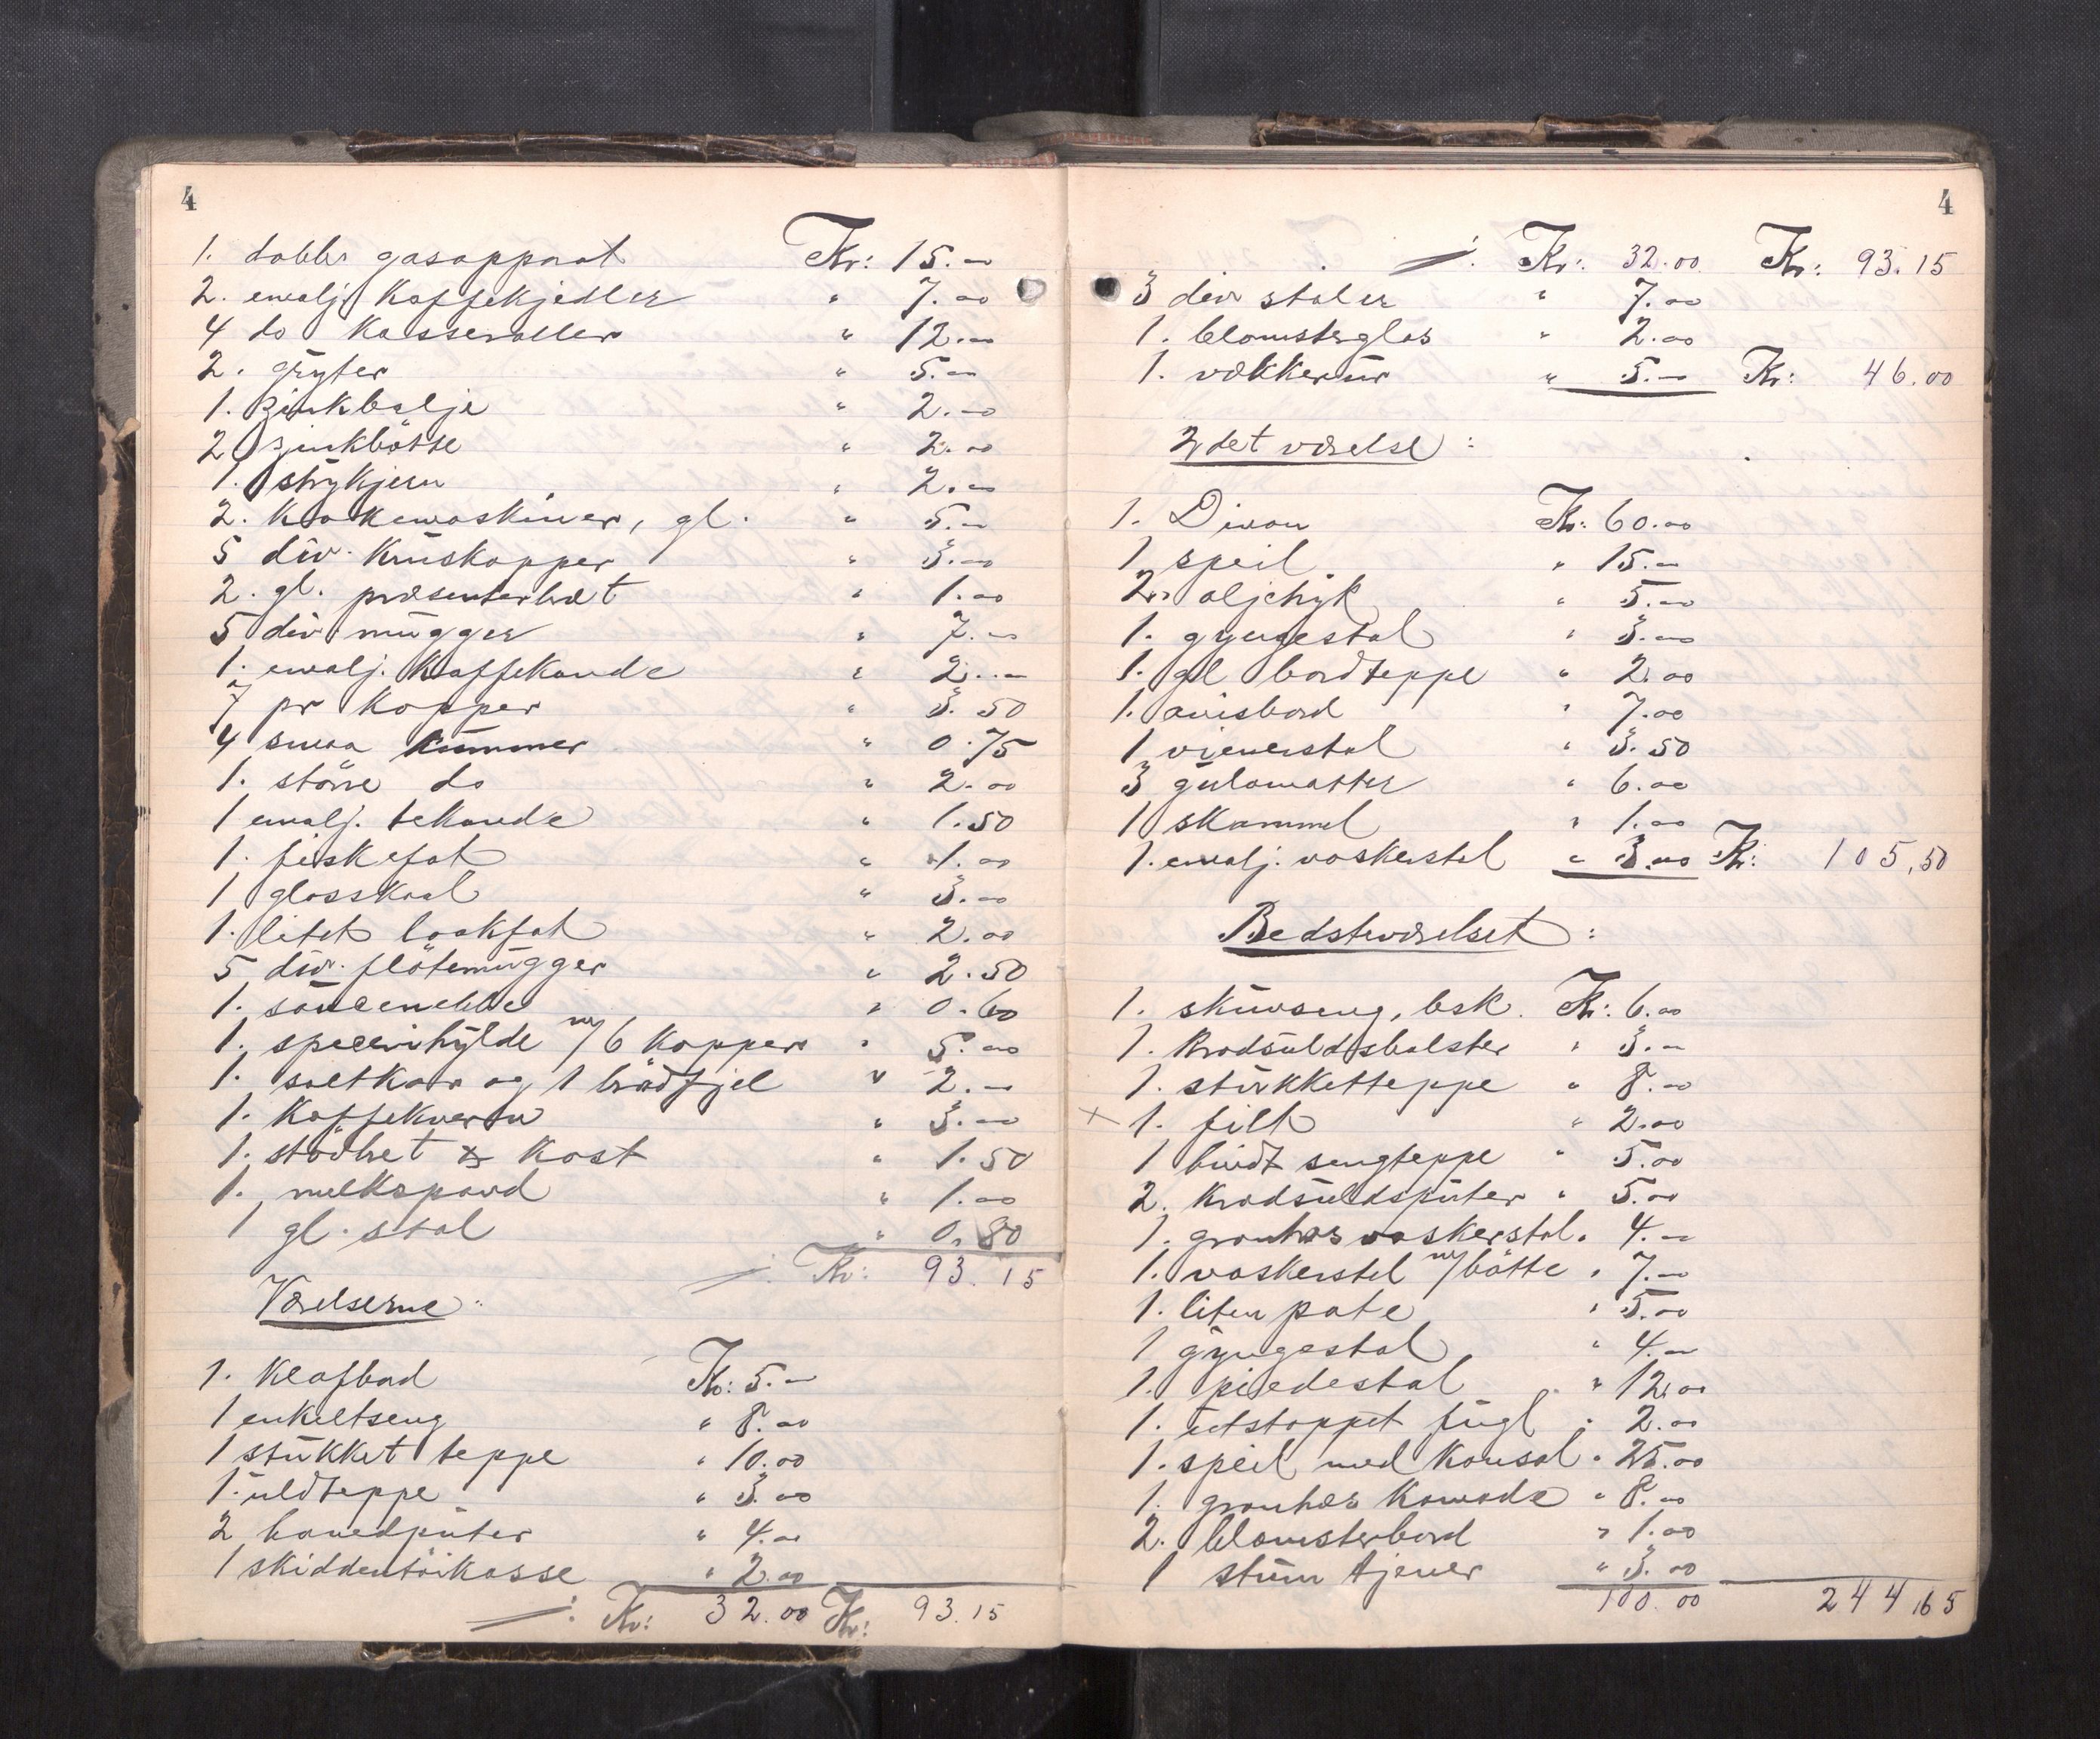 4
1. dobbr gasapparat Kr: 15.00
2. emalj. Kaffekjedler " 7.00
4 do Kasseroller " 12.00
2. gryter " 5.00
1. zinkbalje " 2.00
2 zinkbøtte " 2.00
1. strykjern " 2.00
2. kokemaskiner, gl. " 5.00
5 div. Kruskopper " 3.00
2. gl. præsenterbræt " 1.00
5 div. mugger " 7.00
1. emalj. Kaffekande " 2.00
7 pr Kopper " 3.50
4 smaa kummer " 0.75
1. större do " 2.00
1 emalj. tekande " 1.50
1. fiskefat " 1.00
1 glasskaal " 3.00
1. litet laakfat " 2.00
5 div. flötemugger " 2.50
1. saucenebbe " 0.60
1. specerihylde m/6 Kopper " 5.00
1. saltkar og 1 brödfjel " 2.00
1. Kaffekvern " 3.00
1. stövbret & Kost " 1.50
1. melkspand " 1.00
1 gl. stol " 0.80
Kr: 93.15
Værelserne:
1. Klafbord Kr: 5.00
1 enkeltseng " 8.00
1 stukket teppe " 10.00
1. uldteppe " 3.00
2 hovedputer " 4.00
1 skiddentöikasse " 2.00
Kr: 32.00 Kr: 93.15
4
Kr: 32.00 Kr: 93.15
3 div stoler " 7.00
1. blomsterglas " 2.00
1. vækkerur " 5.00 Kr: 46.00
2det værelse:
1. Divan Kr: 60.00
1 speil " 15.00
2 oljetryk " 5.00
1. gyngestol " 3.00
1. gl bordteppe " 2.00
1. avisbord " 7.00
1 vienerstol " 3.50
3 gulvmatter " 6.00
1 skammel " 1.00
1. emalj. vaskestel " 3.00 Kr: 105,50
Bedsteværelset:
1. skuvseng, bsk. Kr: 6.00
1. Krøduldsbolster " 3.00
1. stukketteppe " 8.00
x 1. filt " 2.00
1 hvidt sengteppe " 5.00
2. Krøduldsputer " 5.00
1. granhæs vaskerstol " 4.00
1. vaskestel m/bøtte " 7.00
1. liten pate " 5.00
1 gyngestol " 4.00
1. piedestal " 12.00
1. utstoppet fugl " 2.00
1. speil med Konsol " 25.00
1. granhæs Komode " 8.00
2. blomsterbord " 1.00
1 stum tjener " 3.00
100.00 244 65